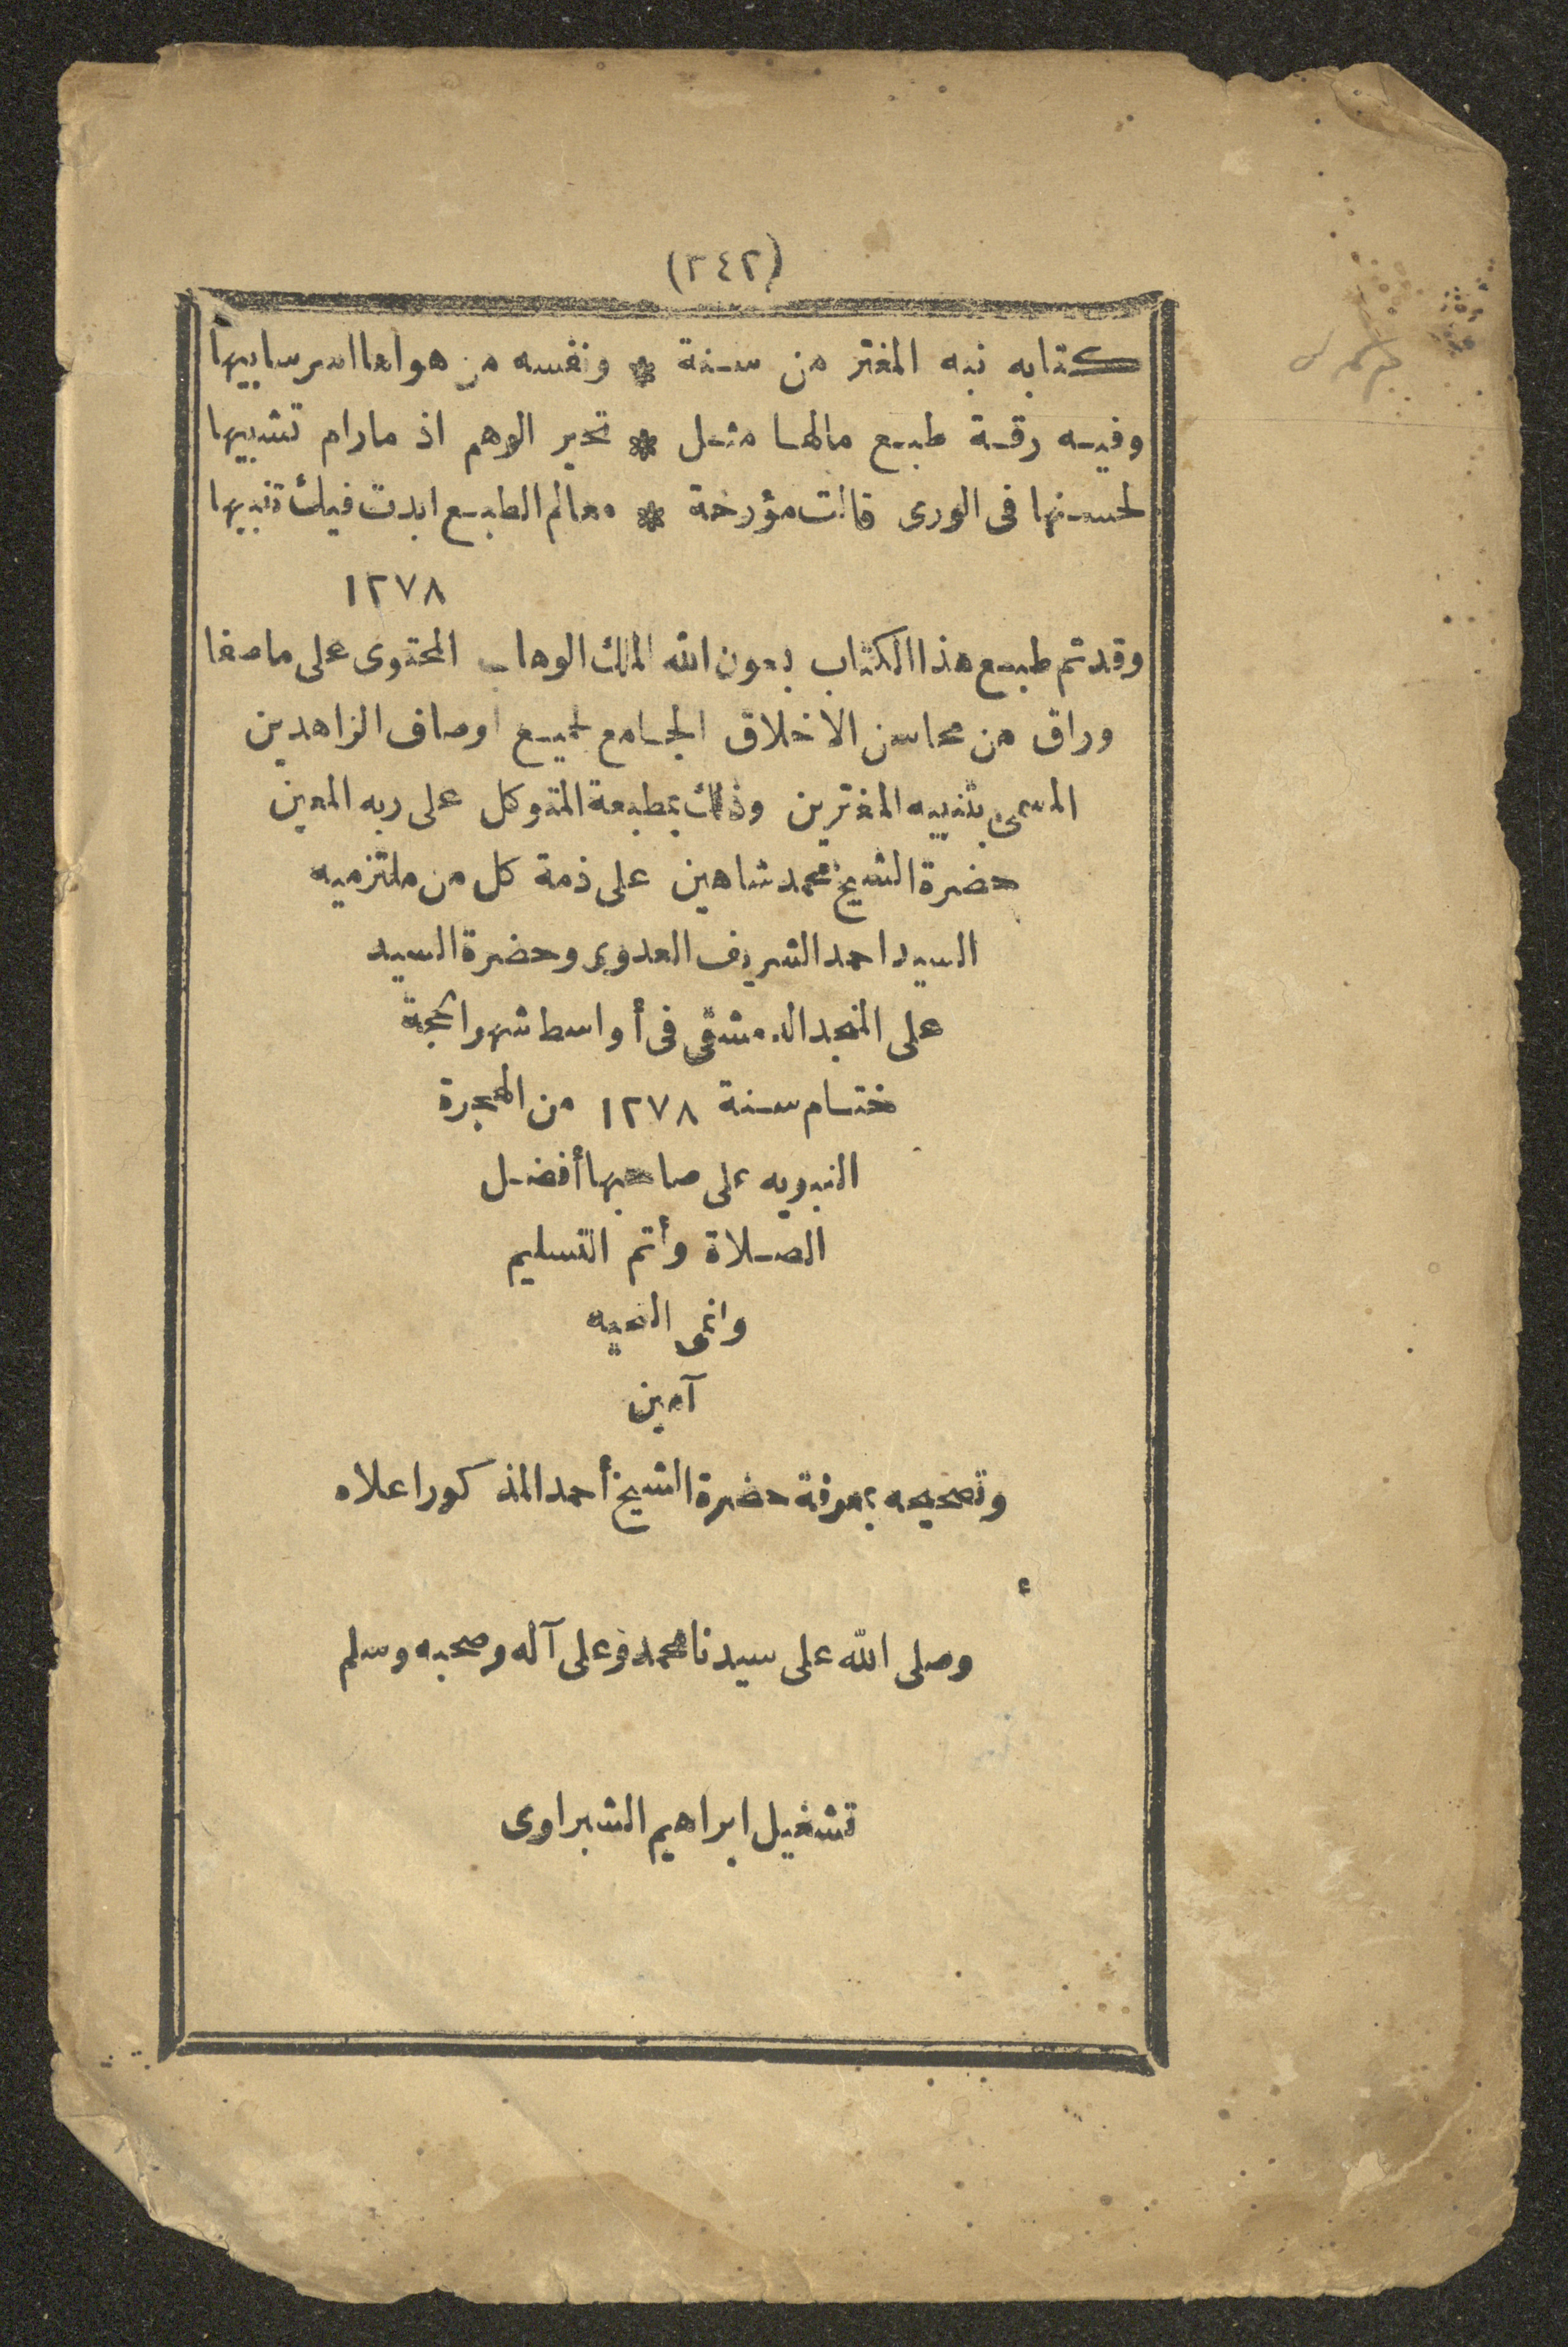 (٢٤٢)
كتابه نبه المغتر من سنة * ونفسه من هواها
وفيه رقة طبع مالها مثل * تحير الوهم اذ مارام تشبيها
لحسنها فى الورى قالت مؤرخة * معالم الطبع ابدت فيك تنبيها
١٢٧٨
وقد تم طبع هذا الكتاب بعون الله الملك الوهاب المحتوى على ما صفا
وراق من محاسن الاخلاق الجامع لجميع اوصاف الزاهدين
المسمى بتنبيه المغترين وذلك بمطبعة المتوكل على ربه المعين
حضرة الشيخ محمد شاهين على ذمة كل من ملتزميه
السيد احمد الشريف العدوى وحضرة السيد
على المنجد الدمشقى فى أواسط شهر الحجة
ختام سنة ١٢٧٨ من الهجرة
النبويه على صاحبها أفضل
الصلاة وأتم التسليم
وانمى التحيه
آمين
وتصحيحه بمعرفة حضرة الشيخ أحمد المذكور اعلاه
وصلى الله على سيدنا محمد وعلى آله وصحبه وسلم
تشغيل ابراهيم الشبراوى